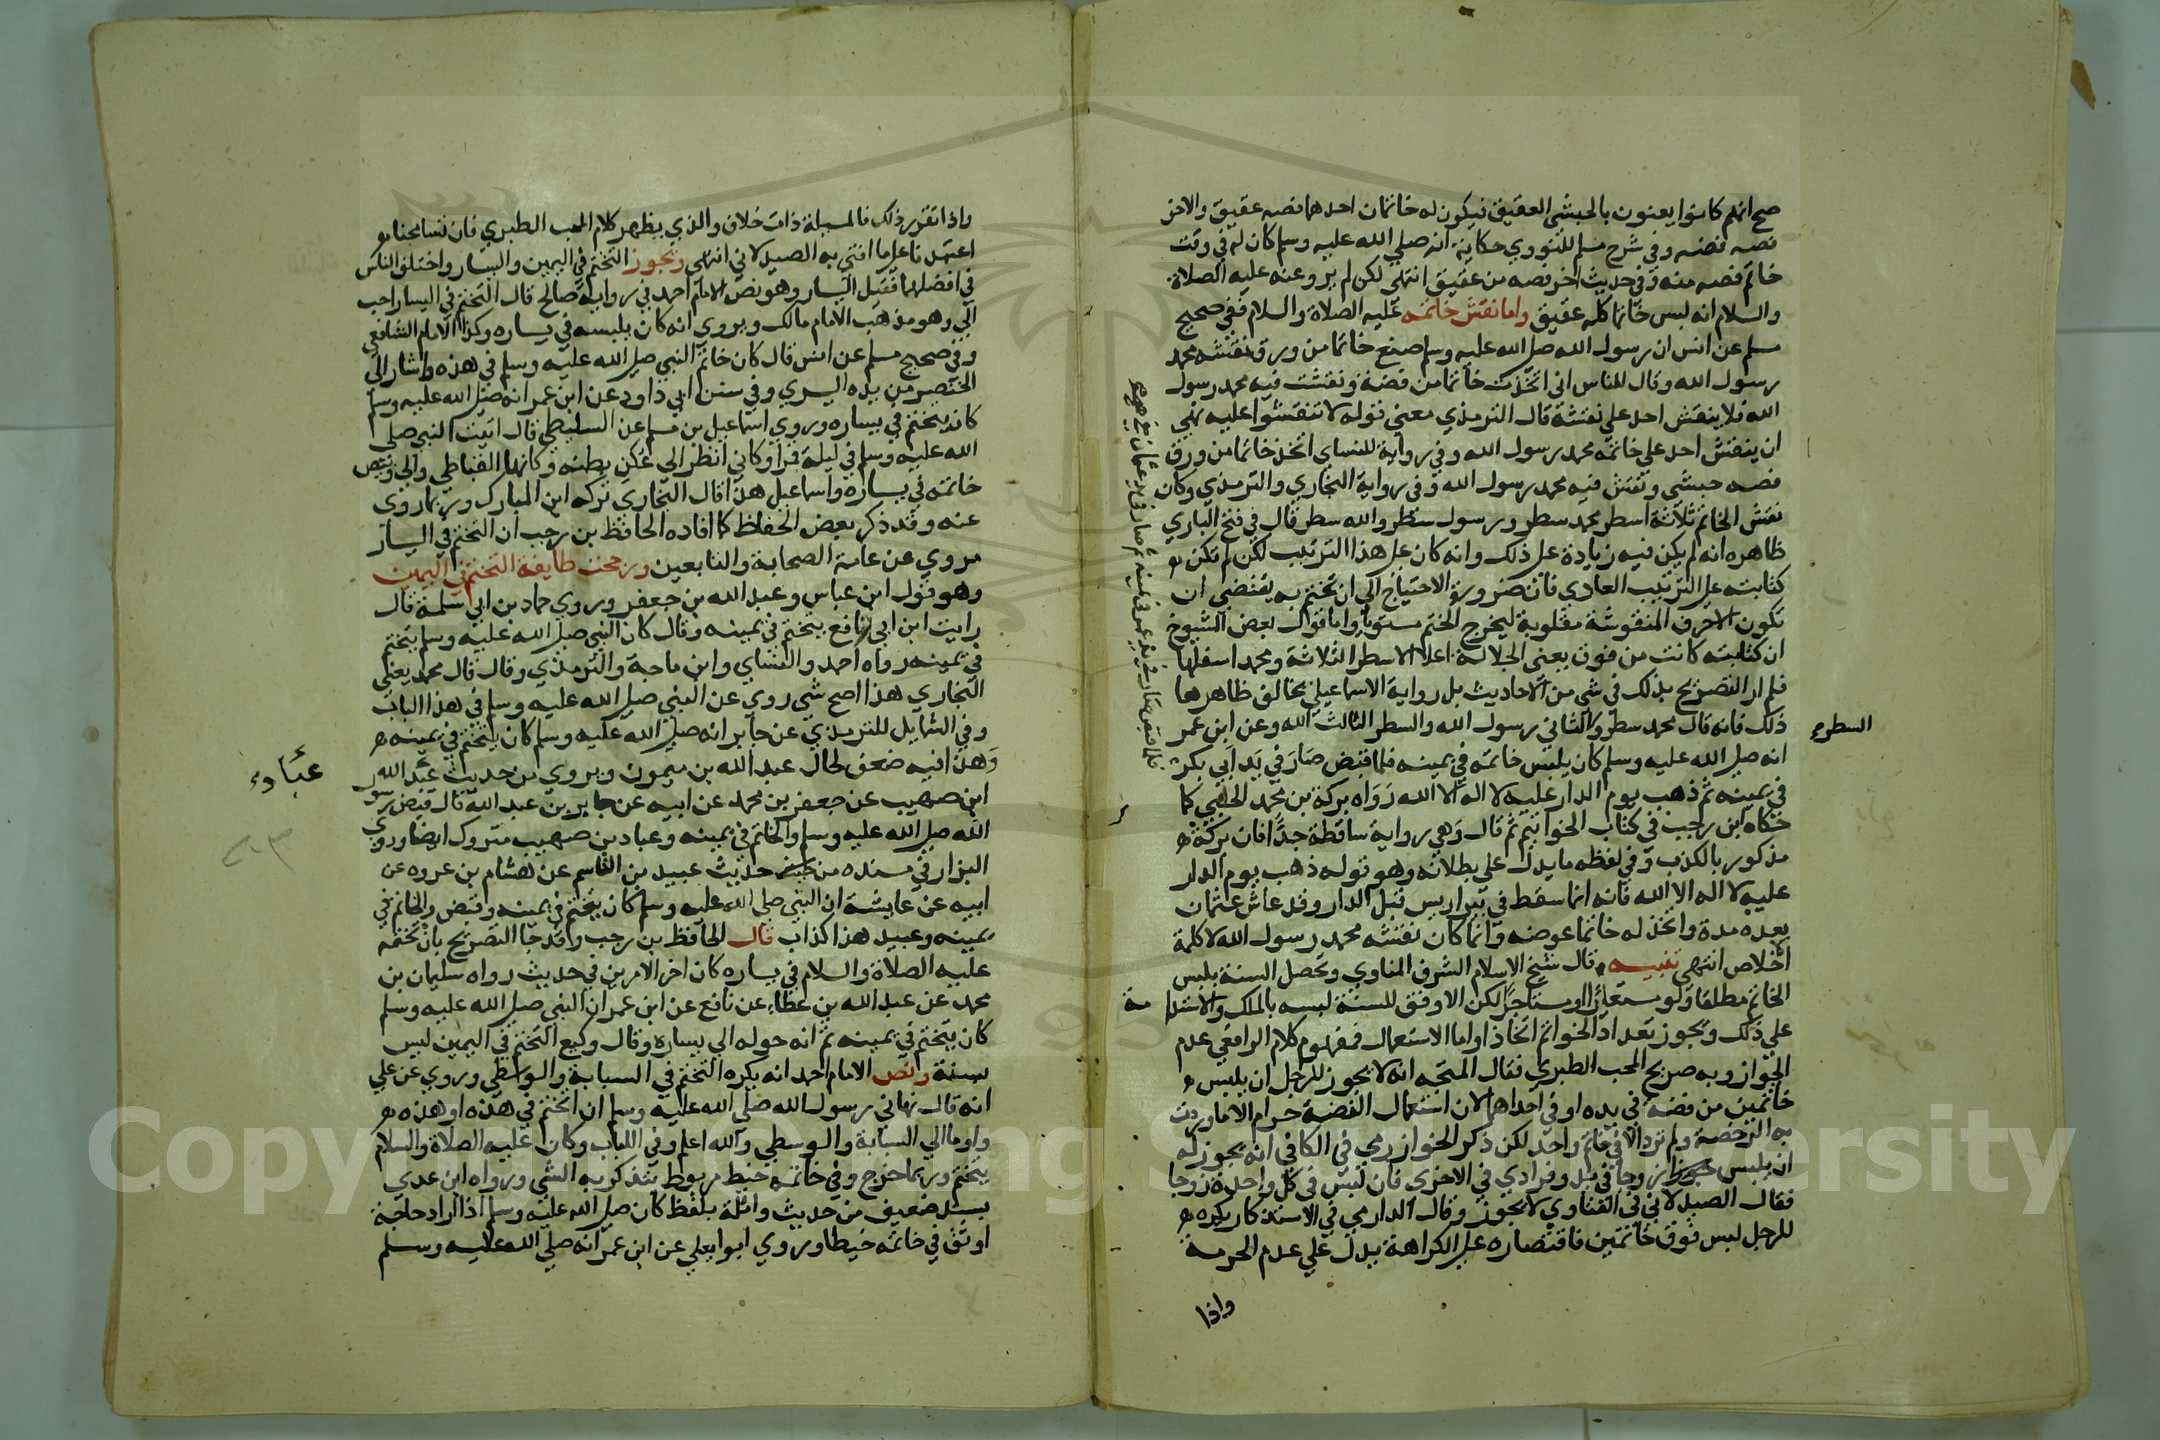 صح انهم كانوا يعنون بالحبشي العقيق فيكون له خاتمان احدهما فصه عقيق والاخر
فصه فضه وفي شرح مسلم للنووي حكاية انه صلي الله عليه وسلم كان له في وقت
خاتم فصه منه وفي حديث اخر فصه من عقيق انتهى لكن لم يرو عنه عليه الصلاة
والسلام انه لبس خاتما كله عقيق واما نقش خاتمه عليه الصلاة والسلام ففي صحيح
مسلم عن انس ان رسول الله صلى الله عليه وسلم صنع خاتما من ورق نقشه محمد
رسول الله وقال للناس اني اتخذت خاتما من فضة ونقشت فيه محمد رسول
الله فلا ينقش احد على نقشه قال الترمذي معني قوله لا تنقشوا عليه نهي
ان ينقش احد علي خاتمه محمد رسول الله وفي رواية للنساي اتخذ خاتما من ورق
فصه حبشي ونقش فيه محمد رسول الله وفي رواية البخاري والترمذي وكان
نقش الخاتم ثلاثة اسطر محمد سطر ورسول سطر والله سطر قال في فتح الباري
ظاهره انه لم يكن فيه زيادة على ذلك وانه كان على هذا الترتيب لكن لم تكن
كتابته على الترتيب العادي فان ضرورة الاحتياج الي ان يختم به يقتضي ان
تكون الاحرف المنقوشة مقلوبة ليخرج الختم مستويا واما قول بعض الشيوخ
ان كتابته كانت من فوق يعني الجلالة اعلا الاسطر الثلاثة ومحمد اسفلها
فلم ار التصريح بذلك في شي من الاحاديث بل رواية الاسماعيلي يخالف ظاهرها
ذلك فانه قال محمد سطر والثاني رسول الله والسطر الثالث الله وعن ابن عمر
السطر
انه صلى الله عليه وسلم كان يلبس خاتمه في يمينه فلما قبض صار في يد ابي بكر
في يمينه ثم ذهب يوم الدار عليه لا اله الا الله رواه بركة بن محمد الحلبي كما
حكاه ابن رجب في كتاب الخواتيم ثم قال وهي رواية ساقطة جدا فان بركة
مذكور بالكذب وفي لفظه ما يدل علي بطلانه وهو قوله ذهب يوم الدار
عليه لا اله الا الله فانه انما سقط في بير اريس قبل الدار وقد عاش عثمان
بعده مدة واتخذ له خاتما عوضه وانما كان نقشه محمد رسول الله لا كلمة
الاخلاص انتهى تنبيه قال شيخ الاسلام الشرف المناوي وتحصل السنة بلبس
الخاتم مطلقا ولو مستعارا او مستاجرا لكن الاوفق للسنة لبسه بالملك والاستدا
مة
علي ذلك ويجوز تعداد الخواتم اتخاذا واما الاستعمال فمفهوم كلام الرافعي عدم
الجواز وبه صريح المحب الطبري فقال المتجه انه لا يجوز للرجل ان يلبس
خاتمين من فضة في يده او في احداهما لان استعمال الفضة حرام الا ما وردت
به الرخصة ولم ترد الا في خاتم واحد لكن ذكر الخوارزمي في الكافي انه يجوز له
ان يلبس زوجا في يد وفرادي في الاخري فان لبس في كل واحدة زوجا
فقال الصيدلاني في الفتاوي لا يجوز وقال الدارمي في الاستذكار يكره
للرجل لبس فوق خاتمين فاقتصاره على الكراهة يدل علي عدم الحرمة
واذا
واذا تقرر ذلك فالمسيلة ذات خلاف والذي يظهر كلام المحب الطبري فان تسامحنا
اعتمدنا على ما افتي به الصيدلاني انتهى ويجوز التختم في اليمين واليسار واختلف الناس
في افضلهما فقيل اليسار وهو نص الامام احمد في رواية صالح قال التختم في اليسار احب
الي وهو مذهب الامام مالك ويروي انه كان يلبسه في يساره وكذا الامام الشافعي
وفي صحيح مسلم عن انس قال كان خاتم النبي صلى الله عليه وسلم في هذه واشار الي
الخنصر من يده اليسري وفي سنن ابي داود عن ابن عمر انه صلى الله عليه وسلم
كان يتختم في يساره وروي اسماعيل بن مسلم عن السليطي قال اتيت النبي صلى
الله عليه وسلم في ليلة قمرا وكاني انظر الي عكن بطنه وكانها القباطي والي وبيص
خاتمه في يساره واسماعيل هذا قال البخاري تركه ابن المبارك وربما روى
عنه وقد ذكر بعض الحفاظ كما افاده الحافظ بن رجب ان التختم في اليسار
مروي عن عامة الصحابة والتابعين ورجحت طايفة التختم في اليمين
وهو قول ابن عباس وعبد الله بن جعفر وروي حماد بن ابي سلمة قال
رايت ابن ابي رافع يتختم في يمينه وقال كان النبي صلى الله عليه وسلم يتختم
في يمينه رواه احمد والنساي وابن ماجة والترمذي وقال قال محمد يعني
البخاري هذا اصح شي روي عن النبي صلى الله عليه وسلم في هذا الباب
وفي الشمايل للترمذي عن جابر انه صلى الله عليه وسلم كان يتختم في يمينه
وهذا فيه ضعف لحال عبد الله بن ميمون ويروي من حديث عبد الله
عباد
ابن صهيب عن جعفر بن محمد عن ابيه عن جابر بن عبد الله قال قبض رسول
الله صلى الله عليه وسلم والخاتم في يمينه وعباد بن صهيب متروك ايضا وروي
البزار في مسنده من حديث عبيد بن القاسم عن هشام بن عروه عن
ابيه عن عايشة ان النبي صلى الله عليه وسلم كان يتختم في يمينه وقبض والخاتم في
يمينه وعبيد هذا كذاب قال الحافظ بن رجب وقد جا التصريح بان تختمه
عليه الصلاة والسلام في يساره كان اخر الامرين في حديث رواه سليمان بن
محمد عن عبد الله بن عطاء عن نافع عن ابن عمر ان النبي صلى الله عليه وسلم
كان يتختم في يمينه ثم انه حوله الي يساره وقال وكيع التختم في اليمين ليس
بسنة ونص الامام احمد انه يكره التختم في السبابة والوسطي وروي عن علي
انه قال نهاني رسول الله صلى الله عليه وسلم ان اتختم في هذه او هذه
واوما الي السبابة والوسطي والله اعلم وفي اللباب وكان عليه الصلاة والسلام
يتختم وربما خرج وفي خاتمه خيط مربوط يتذكر به الشي ورواه ابن عدي
بسند ضعيف من حديث واثلة بلفظ كان صلى الله عليه وسلم اذا اراد حاجة
اوثق في خاتمه خيطا وروي ابو يعلي عن ابن عمر انه صلى الله عليه وسلم